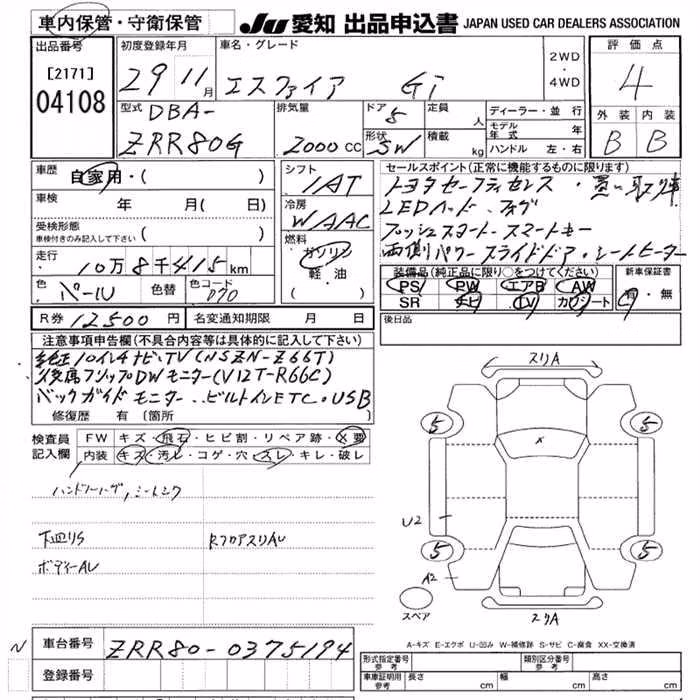 車内保管・守衛保管 JU 愛知 出品申込書 JAPAN USED CAR DEALERS ASSOCIATION
出品番号 初度登録年月 車名・グレード 2WD・4WD 評価点
[2171] 29年 11月 エスクァイア Gi 4
04108 型式 DBA- 排気量 ドア 5 定員 人 ディーラー・並行 外装 内装
ZRR80G 2000cc 形状 SW 積載 kg モデル年式 年 B B
ハンドル 左・右
車歴 自家用・( ) シフト IAT セールスポイント(正常に機能するものに限ります)
車検 年 月( 日) 冷房 WAAC トヨタセーフティセンス・買い取り車
受検形態 LEDヘッド、フォグ
車検付きのみ記入して下さい ( ) 燃料 プッシュスタート、スマートキー
走行 10万8千415km ガソリン 両側パワースライドドア・シートヒーター
色 パール 色替 色コード 070 軽・油 装備品(純正品に限り○をつけてください) 新車保証書
PS PW エアB AW 有・無
R券 12500円 名変通知期限 月 日 SR ナビ TV カワシート
後日品
注意事項申告欄(不具合内容等は具体的に記入して下さい)
純正10インチナビ、TV(NSZN-Z66T)
後席フリップDWモニター(V12T-R66C)
バックガイドモニター、ビルトインETC・USB
修復歴 有(箇所
検査員記入欄 FW キズ・飛石・ヒビ割・リペア跡・X要
内装 キズ・汚レ・コゲ・穴・スレ・キレ・破レ
ハンドル
下廻りS RフロアスリAU
ボディーAU
スリA
5 5
X
U2
5 5
A2
スペア スリA
N 車台番号 ZRR80-0375194
登録番号
A-キズ E-エクボ U-凹み W-補修跡 S-サビ C-腐食 XX-交換済
形式指定番号 参考 類別区分番号 参考
車庫証明用 参考 長さ cm 幅 cm 高さ cm